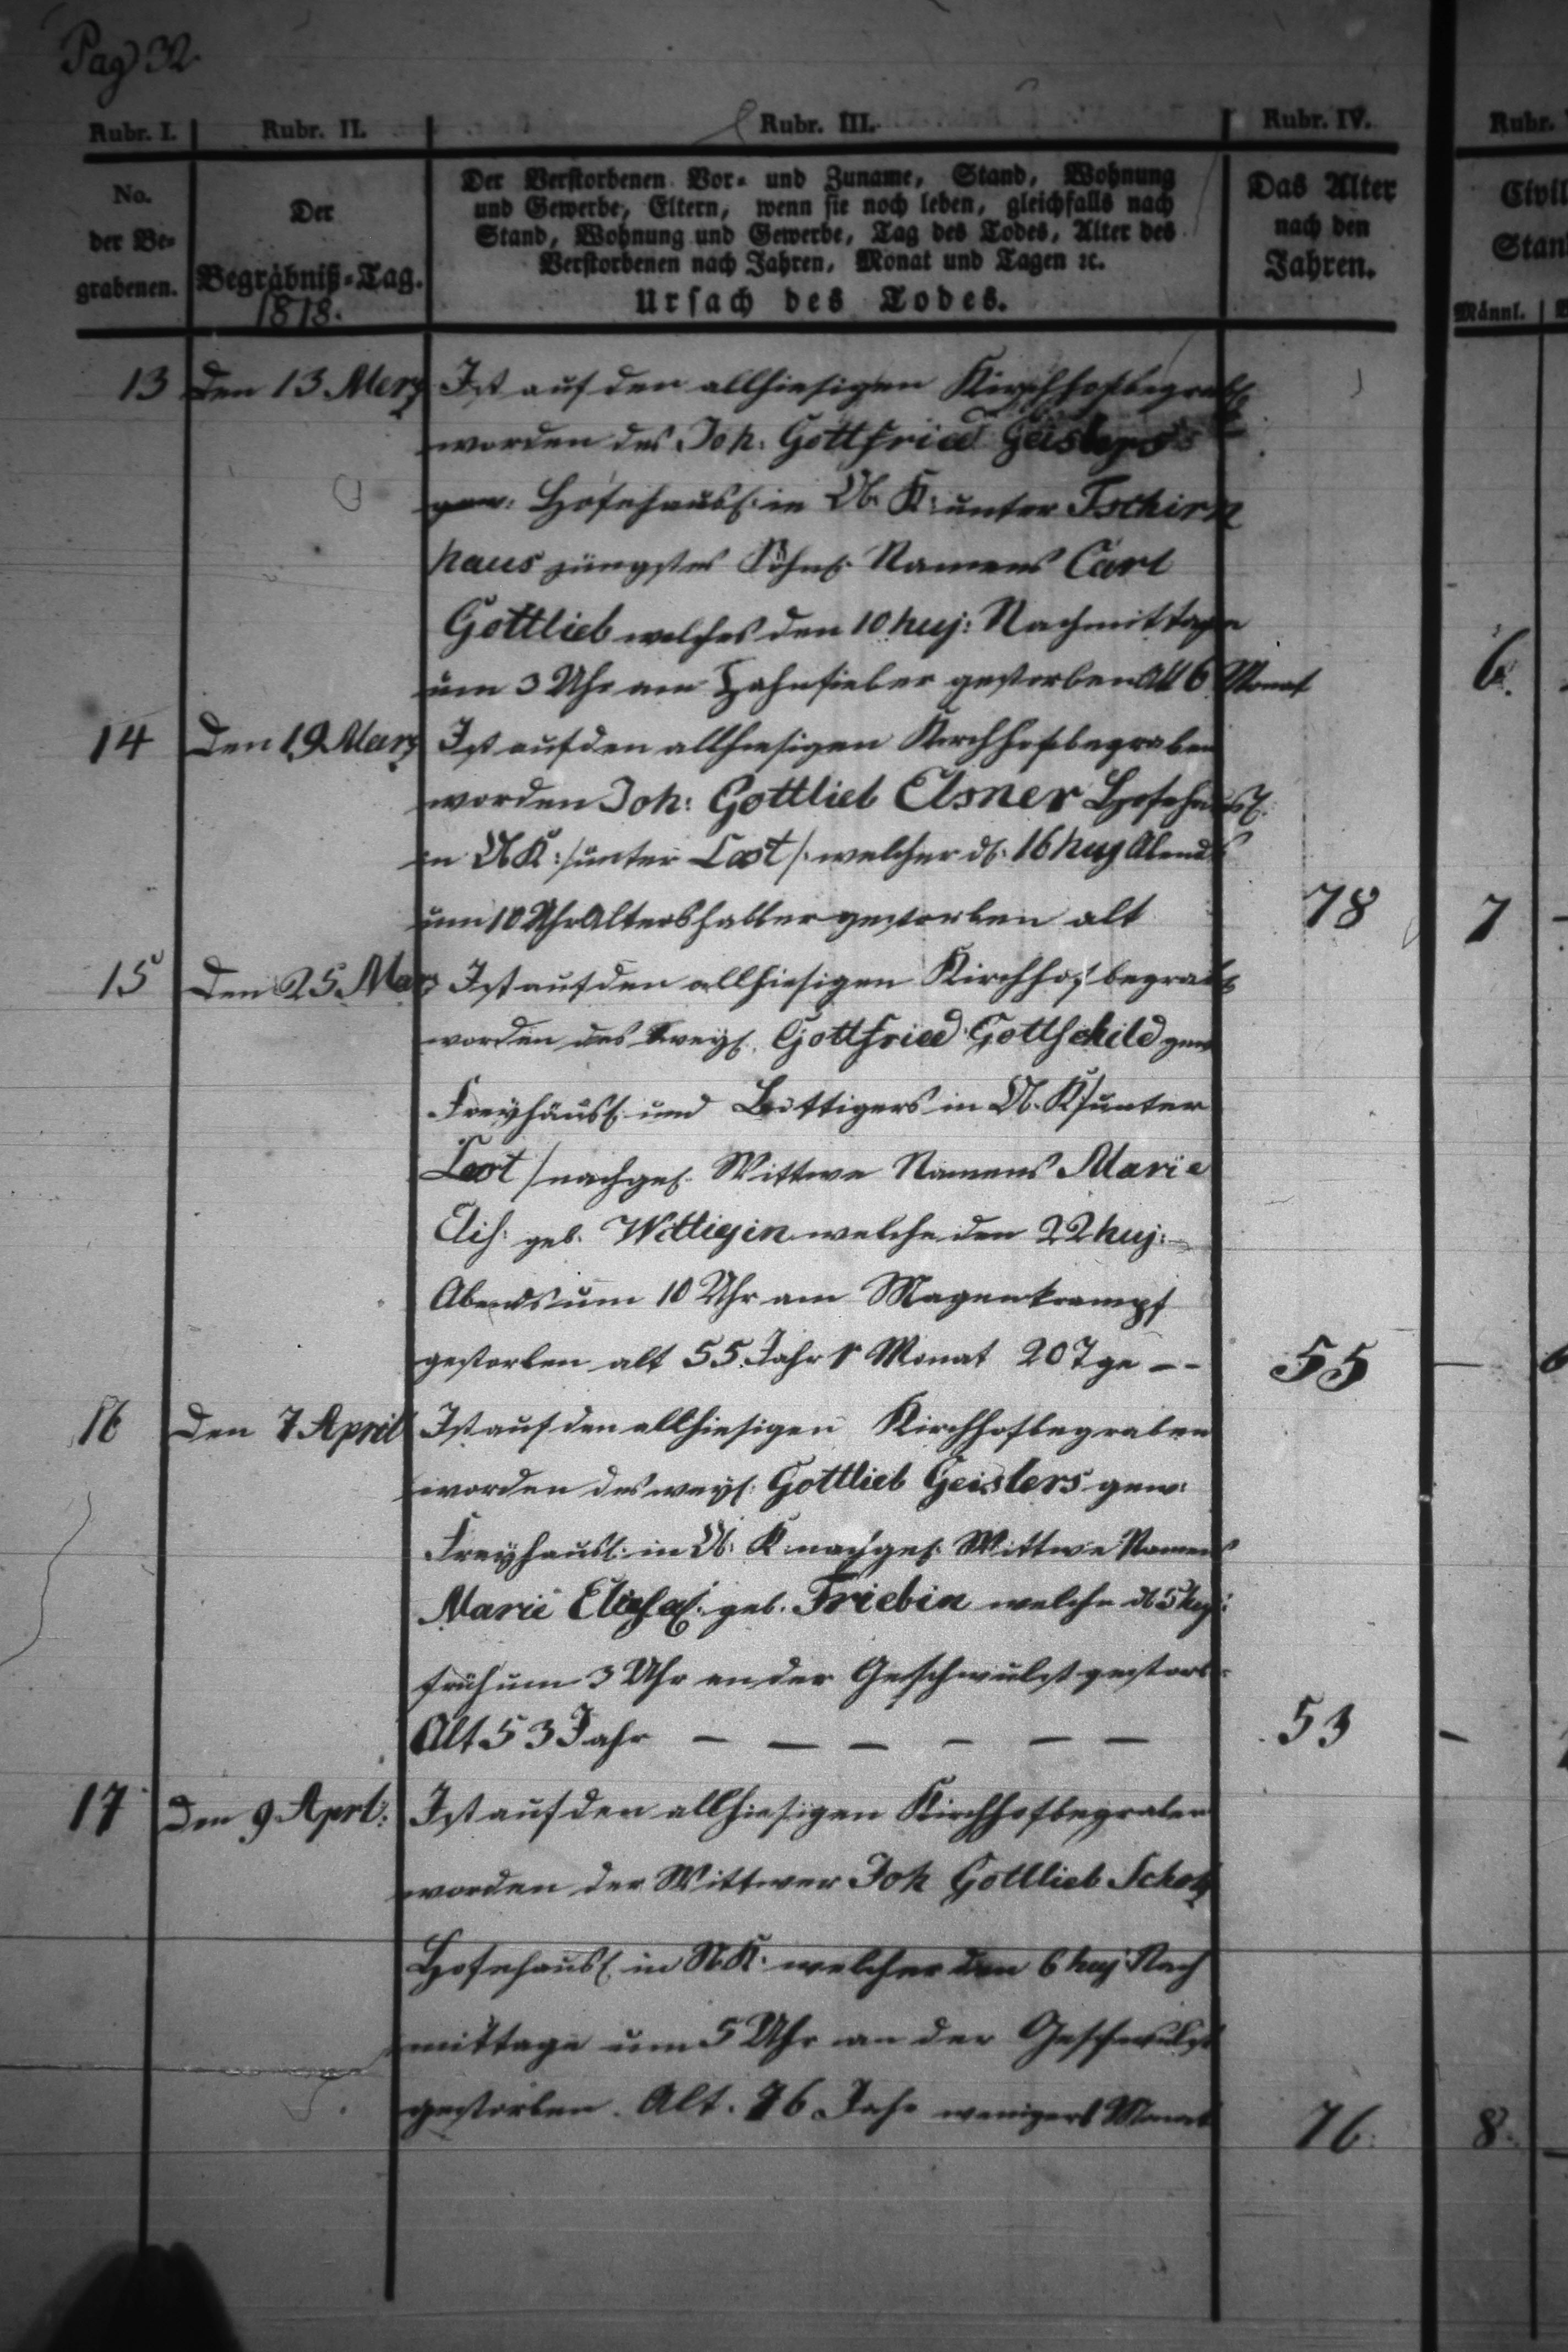 Pag 32.
Rubr. I. Rubr. II. Rubr. III. Rubr. IV. Rubr.
No. der Be= grabenen.
Der Begräbniß=Tag. 1818.
Der Verstorbenen Vor= und Zuname, Stand, Wohnung
und Gewerbe, Eltern, wenn sie noch leben, gleichfalls nach
Stand, Wohnung und Gewerbe, Tag des Todes, Alter des
Verstorbenen nach Jahren, Monat und Tagen ꝛc.
Ursach des Todes.
Das Alter nach den Jahren.
Civil
Stan
Männl.
13 Den 13 Merz Ist auf den allhiesigen Kirchhof begrab
worden des Joh: Gottfried Geislers
gew: Hofehäusl: in Ob. K: unter Tschirn
haus jüngstes Söhnl. Namens Carl
Gottlieb welches den 10 huj: Nachmittage
um 3 Uhr am Zahnfieber gestorben Alt 6 Monat 6.
14 Den 19 Merz Ist auf den allhiesigen Kirchhof begraben
worden Joh: Gottlieb Elsner Hofehäusl.
in Ob K: /unter Lost/: welcher d: 16 huj Abends
um 10 Uhr Altershalber gestorben alt 78 7 -
15 Den 25 Marz Ist auf den allhiesigen Kirchhof begrab
worden des weyl. Gottfried Gottschild gew
Freyhäusl: und Böttigers in Ob. K /unter
Lost/ nachgel. Wittwe Namens Marie
Elis: geb. Wittigin welche den 22 huj:
Abends um 10 Uhr am Magenkrampf
gestorben alt 55 Jahr 1 Monat 20 Tge - - 55 -
16 Den 7 April Ist auf den allhiesigen Kirchhof begraben
worden des weyl: Gottlieb Geislers gew:
Freyhäusl: in Ob: K nachgel: Wittwe Namens
Marie geb. Friebin welche d 5 huj:
früh um 3 Uhr an der Geschwulst gestorb=
Alt 53 Jahr - - - - - - 53 -
17 Den 9 Aprl: Ist auf den allhiesigen Kirchhof begraben
worden der Wittwer Joh Gottlieb Scholz
Hofehäusl in N.K. welcher den 6 huj Nach
mittage um 5 Uhr an der Geschwulst
gestorben. Alt. 76 Jahr weniger 1 Monat 76. 8. -